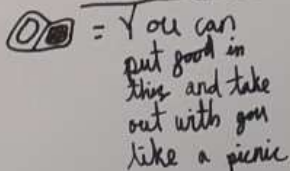 = You can
put food in
this and take
out with you
like a picnic